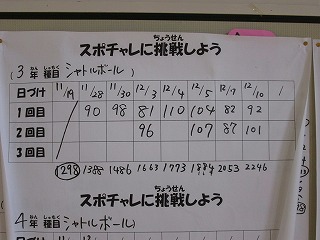 ちょうせん
スポチャレに挑戦しよう
(3年 種目 シャトルボール)
ねん しゅもく
日づけ 11/19 11/28 11/30 12/3 12/4 12/5 12/7 12/10 /
1回目 90 98 81 110 104 82 92
2回目 96 107 87 101
3回目
1298 1388 1486 1663 1773 1984 2053 2246
ちょうせん
スポチャレに挑戦しよう
ねん しゅもく
4年 種目 シャトルボール)